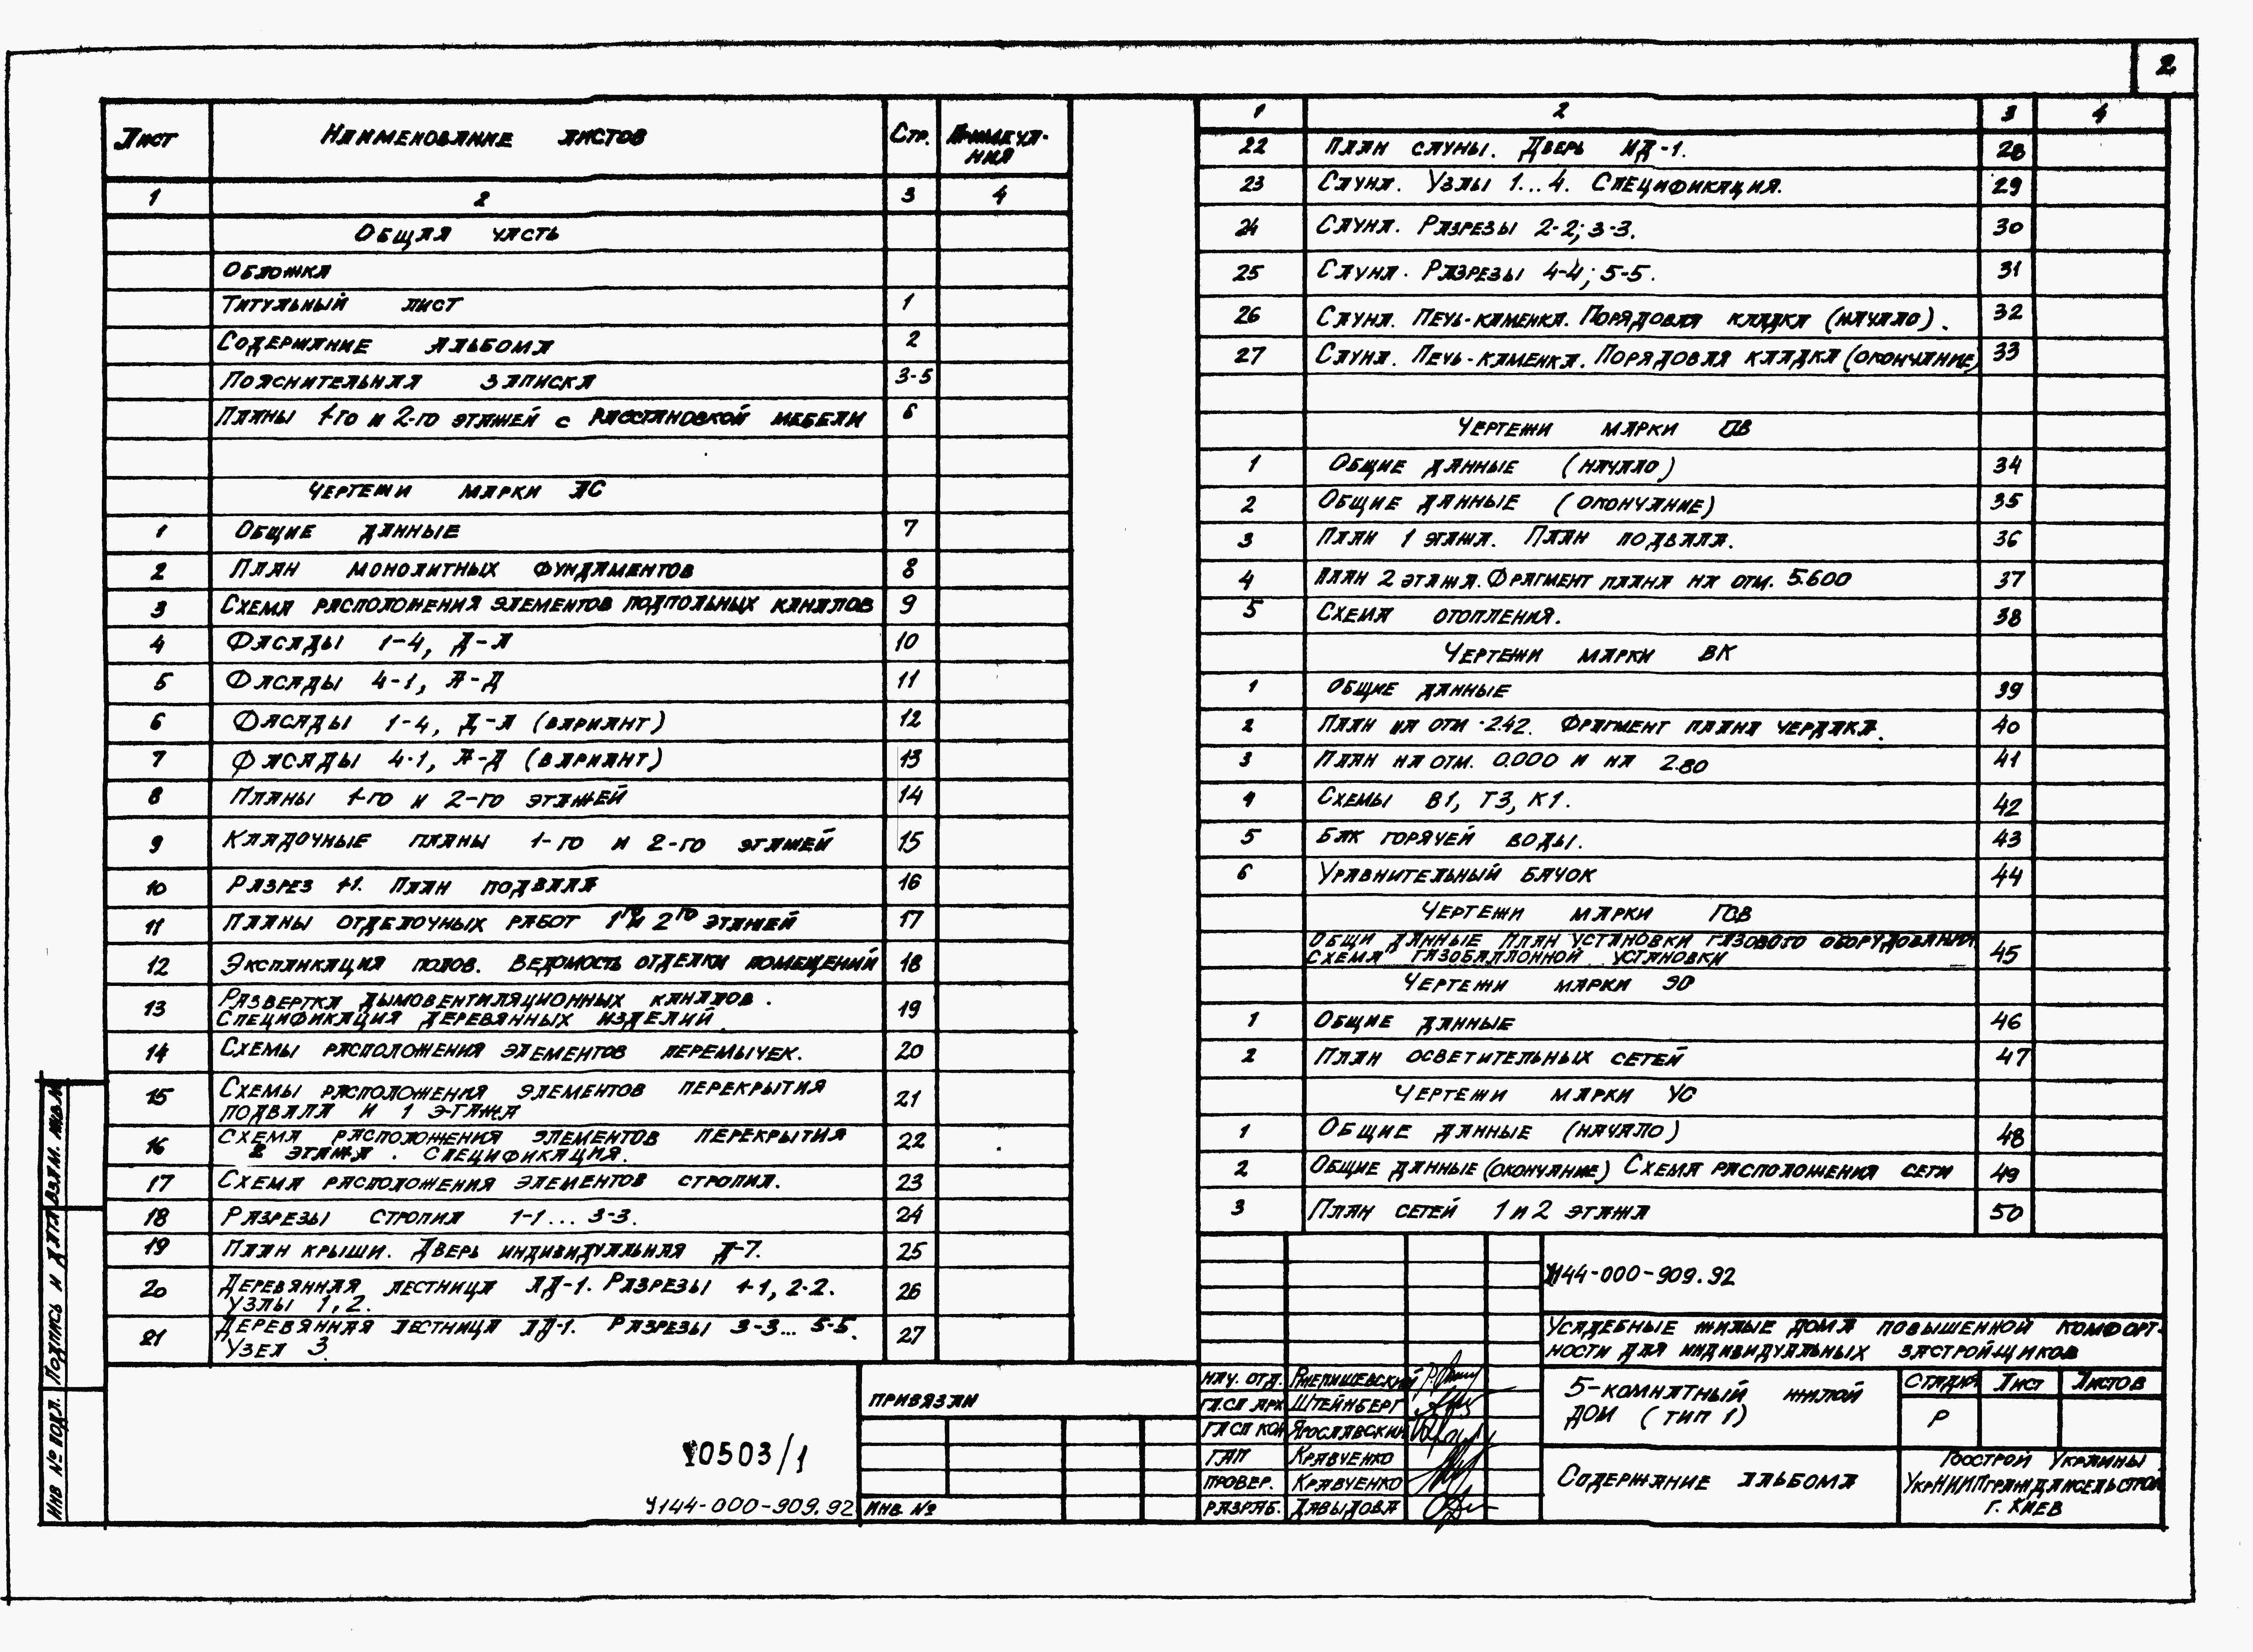 2
Лист Наименование листов Стр. Примеча-
ния
1 2 3 4
Общая часть
Обложка
Титульный лист 1
Содержание альбома 2
Пояснительная записка 3-5
Планы 1-го и 2-го этажей с расстановкой мебели 6
Чертежи марки АС
1 Общие данные 7
2 План монолитных фундаментов 8
3 Схема расположения элементов подпольных каналов 9
4 Фасады 1-4, Д-А 10
5 Фасады 4-1, А-Д 11
6 Фасады 1-4, Д-А (вариант) 12
7 Фасады 4-1, А-Д (вариант) 13
8 Планы 1-го и 2-го этажей 14
9 Кладочные планы 1-го и 2-го этажей 15
10 Разрез 1-1. План подвала 16
11 Планы отделочных работ 1го и 2го этажей 17
12 Экспликация полов. Ведомость отделки помещений 18
13 Развертка дымовентиляционных каналов.
Спецификация деревянных изделий 19
14 Схемы расположения элементов перемычек. 20
15 Схемы расположения элементов перекрытия
подвала и 1 этажа 21
16 Схема расположения элементов перекрытия
2 этажа. Спецификация. 22
17 Схема расположения элементов стропил. 23
18 Разрезы стропил 1-1... 3-3. 24
19 План крыши. Дверь индивидуальная Д-7. 25
20 Деревянная лестница ЛД-1. Разрезы 1-1, 2-2.
Узлы 1, 2. 26
21 Деревянная лестница ЛД-1. Разрезы 3-3... 5-5.
Узел 3. 27
1 2 3 4
22 План сауны. Дверь ИД-1. 28
23 Сауна. Узлы 1...4. Спецификация. 29
24 Сауна. Разрезы 2-2; 3-3. 30
25 Сауна. Разрезы 4-4; 5-5. 31
26 Сауна. Печь-каменка. Порядовая кладка (начало). 32
27 Сауна. Печь-каменка. Порядовая кладка (окончание) 33
Чертежи марки ОВ
1 Общие данные (начало) 34
2 Общие данные (окончание) 35
3 План 1 этажа. План подвала. 36
4 План 2 этажа. Фрагмент плана на отм. 5.600 37
5 Схема отопления. 38
Чертежи марки ВК
1 Общие данные 39
2 План на отм -2.42. Фрагмент плана чердака. 40
3 План на отм. 0.000 и на 2.80 41
4 Схемы В1, Т3, К1. 42
5 Бак горячей воды. 43
6 Уравнительный бачок 44
Чертежи марки ГСВ
Общи данные План установки газового оборудования
Схема газобаллонной установки 45
Чертежи марки ЭО
1 Общие данные 46
2 План осветительных сетей 47
Чертежи марки УС
1 Общие данные (начало) 48
2 Общие данные (окончание) Схема расположения сети 49
3 План сетей 1 и 2 этажа 50
У144-000-909.92
Усадебные жилые дома повышенной комфорт-
ности для индивидуальных застройщиков
Нач. отд. Ржепишевский
Гл.сп арх Штейнберг
Гл сп кон Ярославский
ГАП Кравченко
Провер. Кравченко
Разраб. Давыдова
5-комнатный жилой
дом (тип 1)
Стадия Лист Листов
Р
Содержание альбома
Госстрой Украины
УкрНИИПграждансельстрой
г. Киев
Привязан
Инв. №
10503/1
У144-000-909.92
Взам. инв. №
Подпись и дата
Инв № подл.